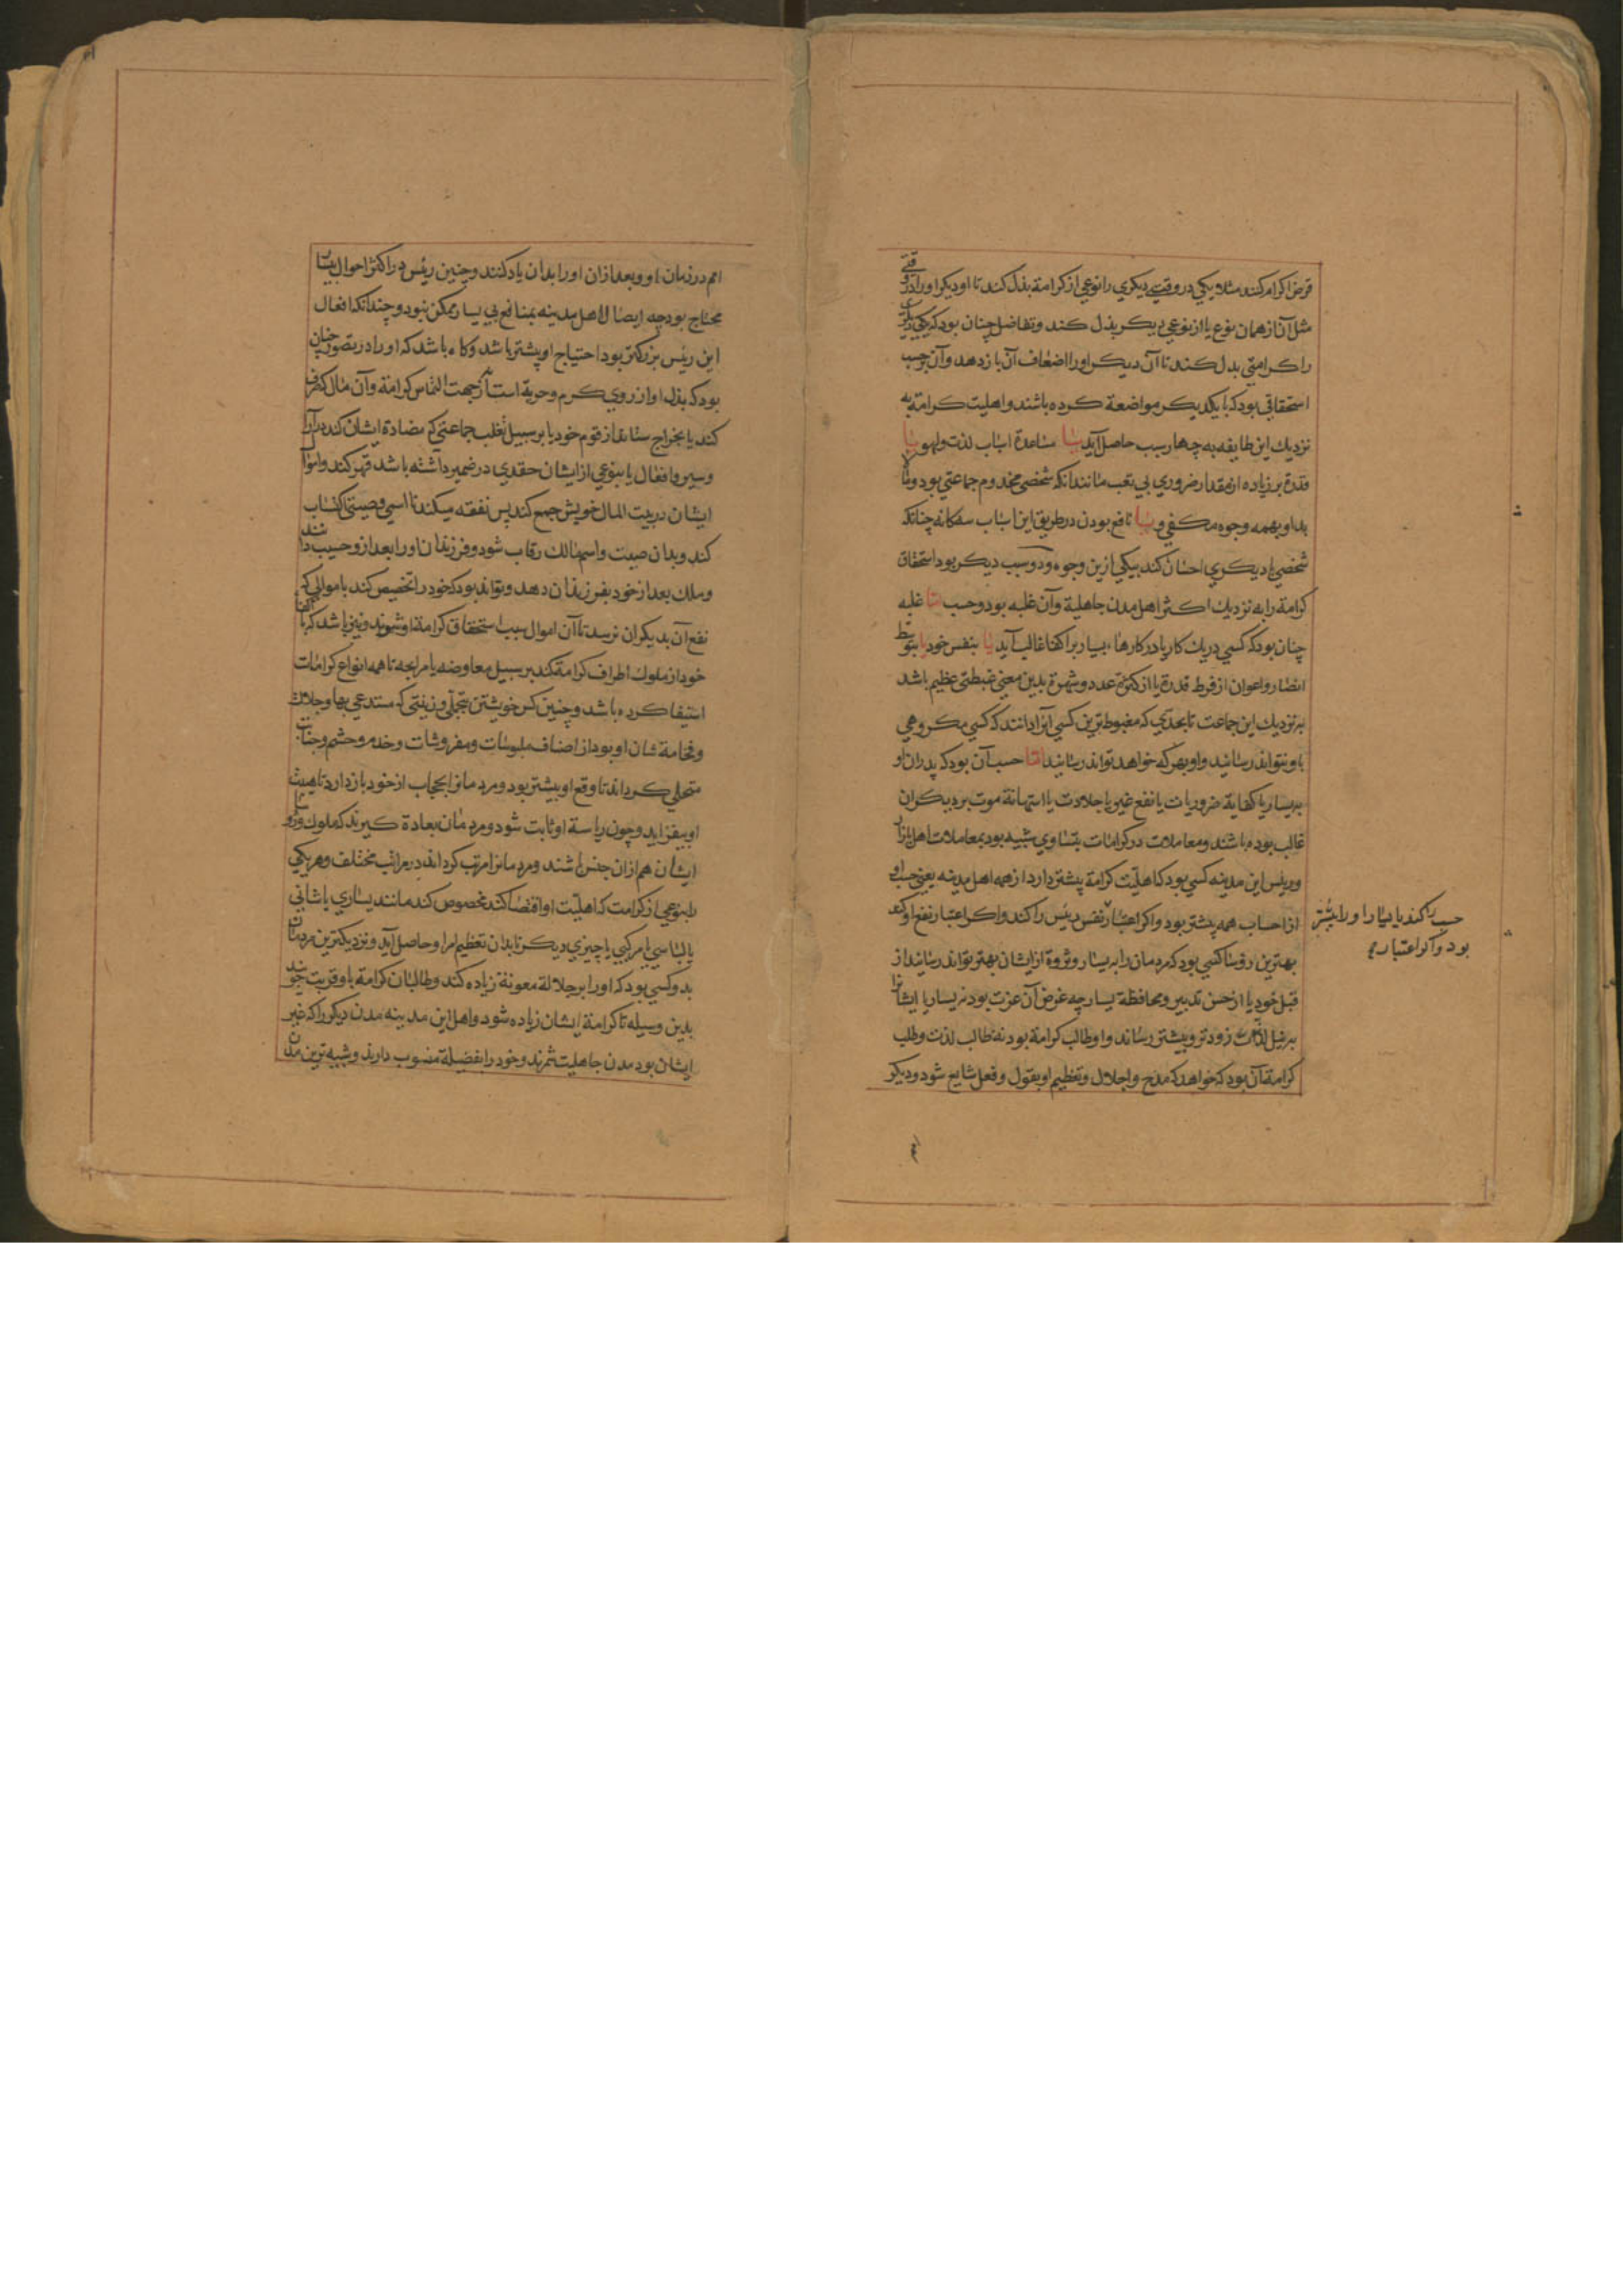 قرض اکرام کنند مثلا یکی در وقتی دیکری را نوعی از کرامة بذل کند تا او دیکر او را در وقتی
مثل آن از همان نوع یا از نوعی دیکر بذل کند و تفاضل چنان بود که یکی دیکری
را کرامتی بذل کند تا آن دیکر او را اضعاف آن باز دهد و آن بر حسب
استحقاقی بود که با یکدیکر مواضعة کرده باشند و اهلیت کرامة به
نزدیك این طایفه به چهار سبب حاصل آید یسار یا مساعدة اسباب لذت و لهو یا
قدرة بر زیاده از مقدار ضروری بی تعب مانند انکه شخصی مخدوم جماعتی بود و ما
بد او بهمه وجوه مکفی و یا نافع بودن در طریق این اسباب سه کانه چنانکه
شخصی با دیکری احسان کند بیکی ازین وجوه و دو سبب دیکر بود استحقاق
کرامة را به نزدیك اکثر اهل مدن جاهلیة و آن غلبه بود و حسب اما غلبه
چنان بود که کسی در یك کار یا در کارها بسیار بر اکفا غالب آید یا بنفس خود یا بتوسط
انصار و اعوان از فرط قدرة یا از کثرة عدد و شهرة بدین معنی غبطتی عظیم باشد
به نزدیك این جماعت تا بحدی که مغبوط ترین کسی آنرا دانند که کسی مکروهی
باو نتواند رسانید و او بهر که خواهد تواند رسانید اما حسب آن بود که پدران او
به یسار یا کفایة ضروریات یا نفع غیر یا جلادت یا استهانة موت بر دیکران
غالب بوده باشند و معاملات در کرامات بتساوی شبیه بود بمعاملات اهل بازار
و رییس این مدینه کسی بود که اهلیت کرامة بیشتر دارد از همه اهل مدینه یعنی حسب او
از احساب همه بیشتر بود و اکر اعتبار نفس رئیس را کنند و اکر اعتبار نفع او کنند
حسب را کنند یا یسار او را بیشتر
بود و اکر اعتبار
بهترین رؤسا کسی بود که مردمان را به یسار و ثروة از ایشان بهتر تواند رسانید از
قبل خود یا از حسن تدبیر و محافظة یسار چه غرض آن عزت بود نه یسار یا ایشانرا
به نیل لذات زودتر و بیشتر رساند و او طالب کرامة بود نه طالب لذت و طلب
کرامة آن بود که خواهد که مدح و اجلال و تعظیم او بقول و فعل شایع شود و دیکر
امم در زمان او و بعد از ان او را بدان یاد کنند و چنین رئیس در اکثر احوال بیسار
محتاج بود چه ایصال اهل مدینه بمنافع بی یسار ممکن نبود و چندانکه افعال
این رئیس بزرکتر بود احتیاج او بیشتر باشد و کاه باشد که او را در تصور چنان
بود که بذل او از روی کرم و حریة است نه از جهت التماس کرامة و آن مال که صرف
کند یا بخراج ستاند از قوم خود یا بر سبیل تغلب جماعتی که مضادة ایشان کند در آرا
و سیر و افعال یا بنوعی از ایشان حقدی در ضمیر داشته باشد قهر کند و اموال
ایشان در بیت المال خویش جمع کند پس نفقه میکند تا اسمی و صیتی اکتساب
کند و بدان صیت و اسم مالك رقاب شود و فرزندان او را بعد از و حسیب دانند
و ملك بعد از خود بفرزندان دهد و تواند بود که خود را تخصیص کند باموالی که
نفع آن بدیکران نرسد تا آن اموال سبب استحقاق کرامة او شوند و نیز باشد که با اکفا
خود از ملوك اطراف کرامة کند بر سبیل معاوضه یا مرابحه تا همه انواع کرامات
استیفا کرده باشد و چنین کس خویشتن بتجملی و زینتی که مستدعی بها و جلالت
و فخامة شان او بود از اصناف ملبوسات و مفروشات و خدم و حشم و جنایب
متحلی کرداند تا وقع او بیشتر بود و مردمانرا بحجاب از خود باز دارد تا هیبت
او بیفزاید و چون ریاسة او ثابت شود و مردمان بعادة کیرند که ملوك و رؤسا
ایشان هم ازان جنس باشند و مردمانرا مرتب کرداند در مراتب مختلف و هر یکی
را بنوعی از کرامت که اهلیت او اقتضا کند مخصوص کند مانند یساری یا ثنایی
یا لباسی یا مرکبی یا چیزی دیکر تا بدان تعظیم امر او حاصل آید و نزدیکترین مردمان
بدو کسی بود که او را بر جلالة معونة زیاده کند و طالبان کرامة باو قربت جویند
بدین وسیله تا کرامة ایشان زیاده شود و اهل این مدینه مدن دیکر را که غیر
ایشان بود مدن جاهلیت شمرند و خود را بفضیلة منسوب دارند و شبیه ترین مدن